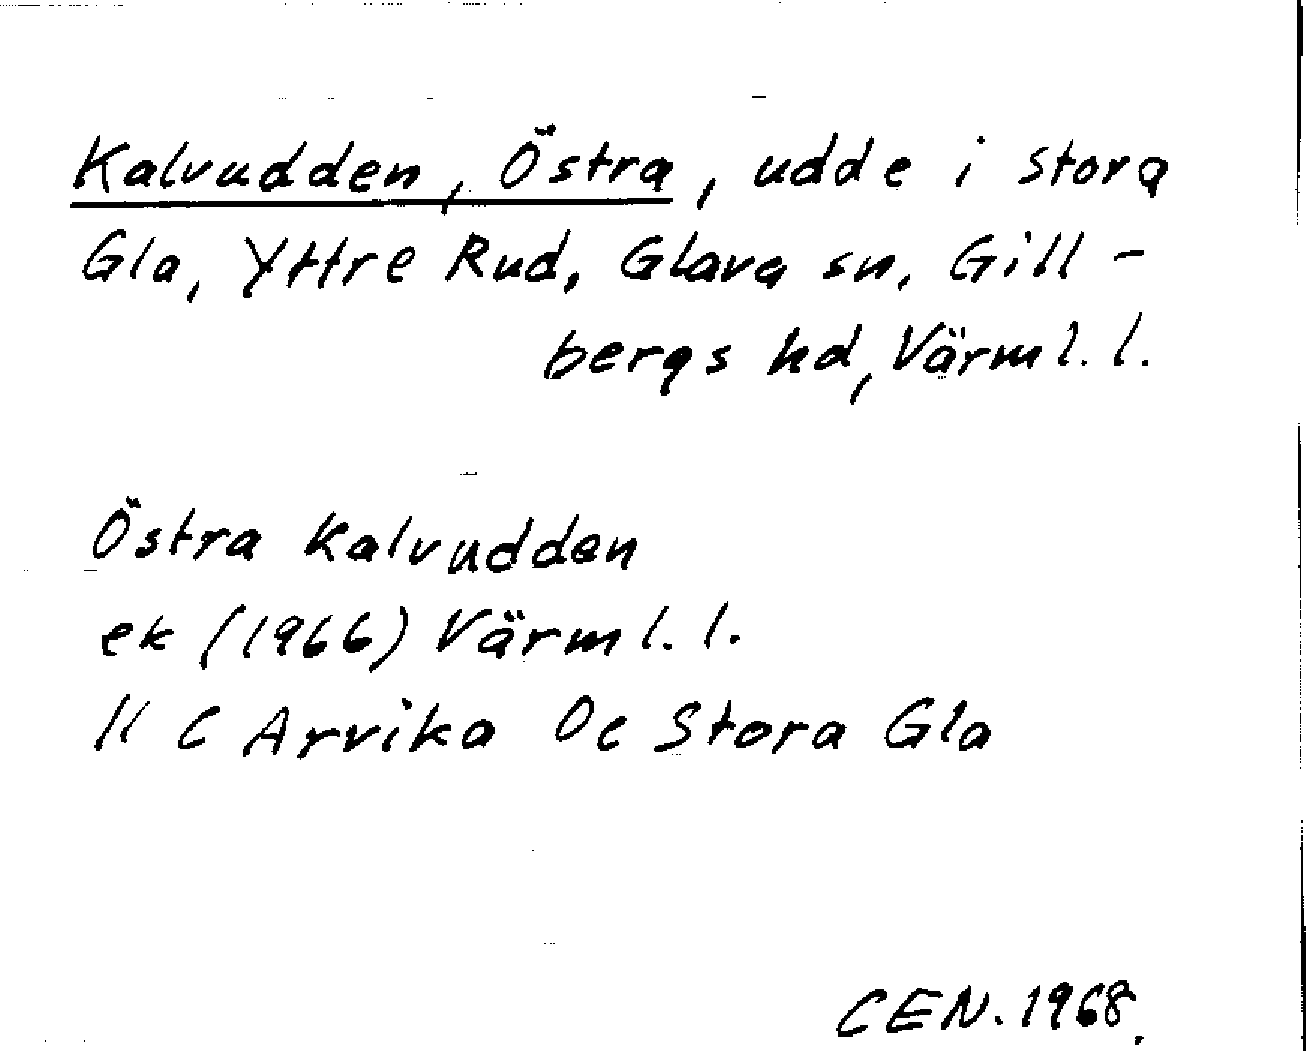 Kalvudden, Östra, udde i Stora
Gla, Yttre Rud, Glava sn, Gill-
bergs hd, Värml. l.
Östra Kalvudden
ek (1966) Värml. l.
11 C Arvika 0c Stora Gla
CEN. 1968.